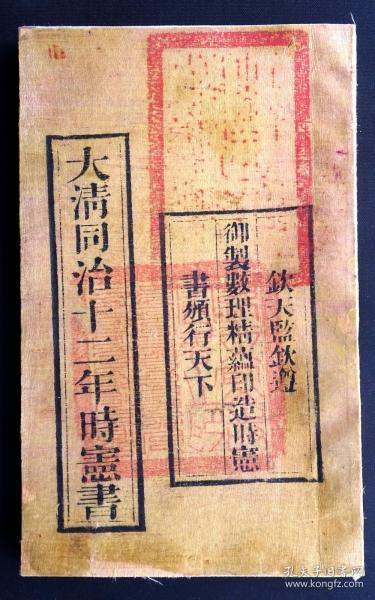 欽天監欽遵
御製數理精蘊印造時憲
書頒行天下
大清同治十二年時憲書
孔夫子旧书网
www.kongfz.com